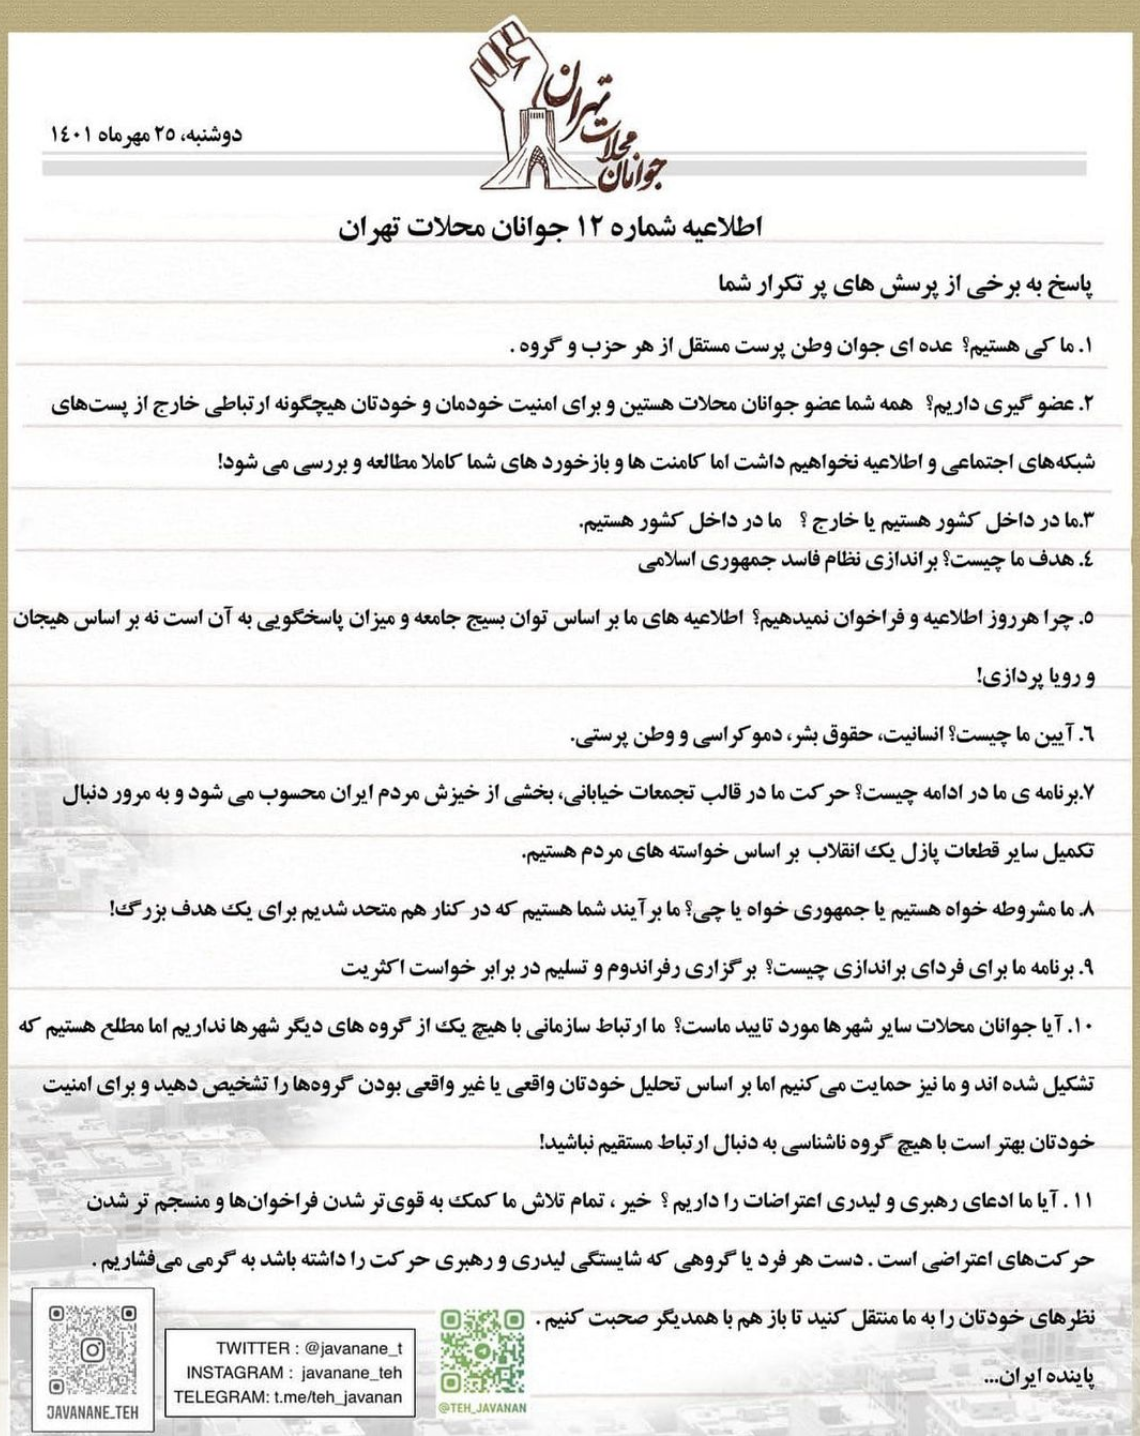 جوانان محلات تهران
دوشنبه، ۲۵ مهرماه ۱۴۰۱
اطلاعیه شماره ۱۲ جوانان محلات تهران
پاسخ به برخی از پرسش های پر تکرار شما
۱. ما کی هستیم؟ عده ای جوان وطن پرست مستقل از هر حزب و گروه .
۲. عضو گیری داریم؟ همه شما عضو جوانان محلات هستین و برای امنیت خودمان و خودتان هیچگونه ارتباطی خارج از پست‌های
شبکه‌های اجتماعی و اطلاعیه نخواهیم داشت اما کامنت ها و بازخورد های شما کاملا مطالعه و بررسی می شود!
۳.ما در داخل کشور هستیم یا خارج ؟ ما در داخل کشور هستیم.
٤. هدف ما چیست؟ براندازی نظام فاسد جمهوری اسلامی
۵. چرا هرروز اطلاعیه و فراخوان نمیدهیم؟ اطلاعیه های ما بر اساس توان بسیج جامعه و میزان پاسخگویی به آن است نه بر اساس هیجان
و رویا پردازی!
٦. آیین ما چیست؟ انسانیت، حقوق بشر، دموکراسی و وطن پرستی.
۷.برنامه ی ما در ادامه چیست؟ حرکت ما در قالب تجمعات خیابانی، بخشی از خیزش مردم ایران محسوب می شود و به مرور دنبال
تکمیل سایر قطعات پازل یک انقلاب بر اساس خواسته های مردم هستیم.
۸. ما مشروطه خواه هستیم یا جمهوری خواه یا چی؟ ما برآیند شما هستیم که در کنار هم متحد شدیم برای یک هدف بزرگ!
۹. برنامه ما برای فردای براندازی چیست؟ برگزاری رفراندوم و تسلیم در برابر خواست اکثریت
۱۰. آیا جوانان محلات سایر شهرها مورد تایید ماست؟ ما ارتباط سازمانی با هیچ یک از گروه های دیگر شهرها نداریم اما مطلع هستیم که
تشکیل شده اند و ما نیز حمایت می‌کنیم اما بر اساس تحلیل خودتان واقعی یا غیر واقعی بودن گروه‌ها را تشخیص دهید و برای امنیت
خودتان بهتر است با هیچ گروه ناشناسی به دنبال ارتباط مستقیم نباشید!
۱۱ . آیا ما ادعای رهبری و لیدری اعتراضات را داریم ؟ خیر ، تمام تلاش ما کمک به قوی‌تر شدن فراخوان‌ها و منسجم تر شدن
حرکت‌های اعتراضی است . دست هر فرد یا گروهی که شایستگی لیدری و رهبری حرکت را داشته باشد به گرمی می‌فشاریم .
نظرهای خودتان را به ما منتقل کنید تا باز هم با همدیگر صحبت کنیم .
پاینده ایران...
@TEH_JAVANAN
TWITTER : @javanane_t
INSTAGRAM : javanane_teh
TELEGRAM: t.me/teh_javanan
JAVANANE_TEH